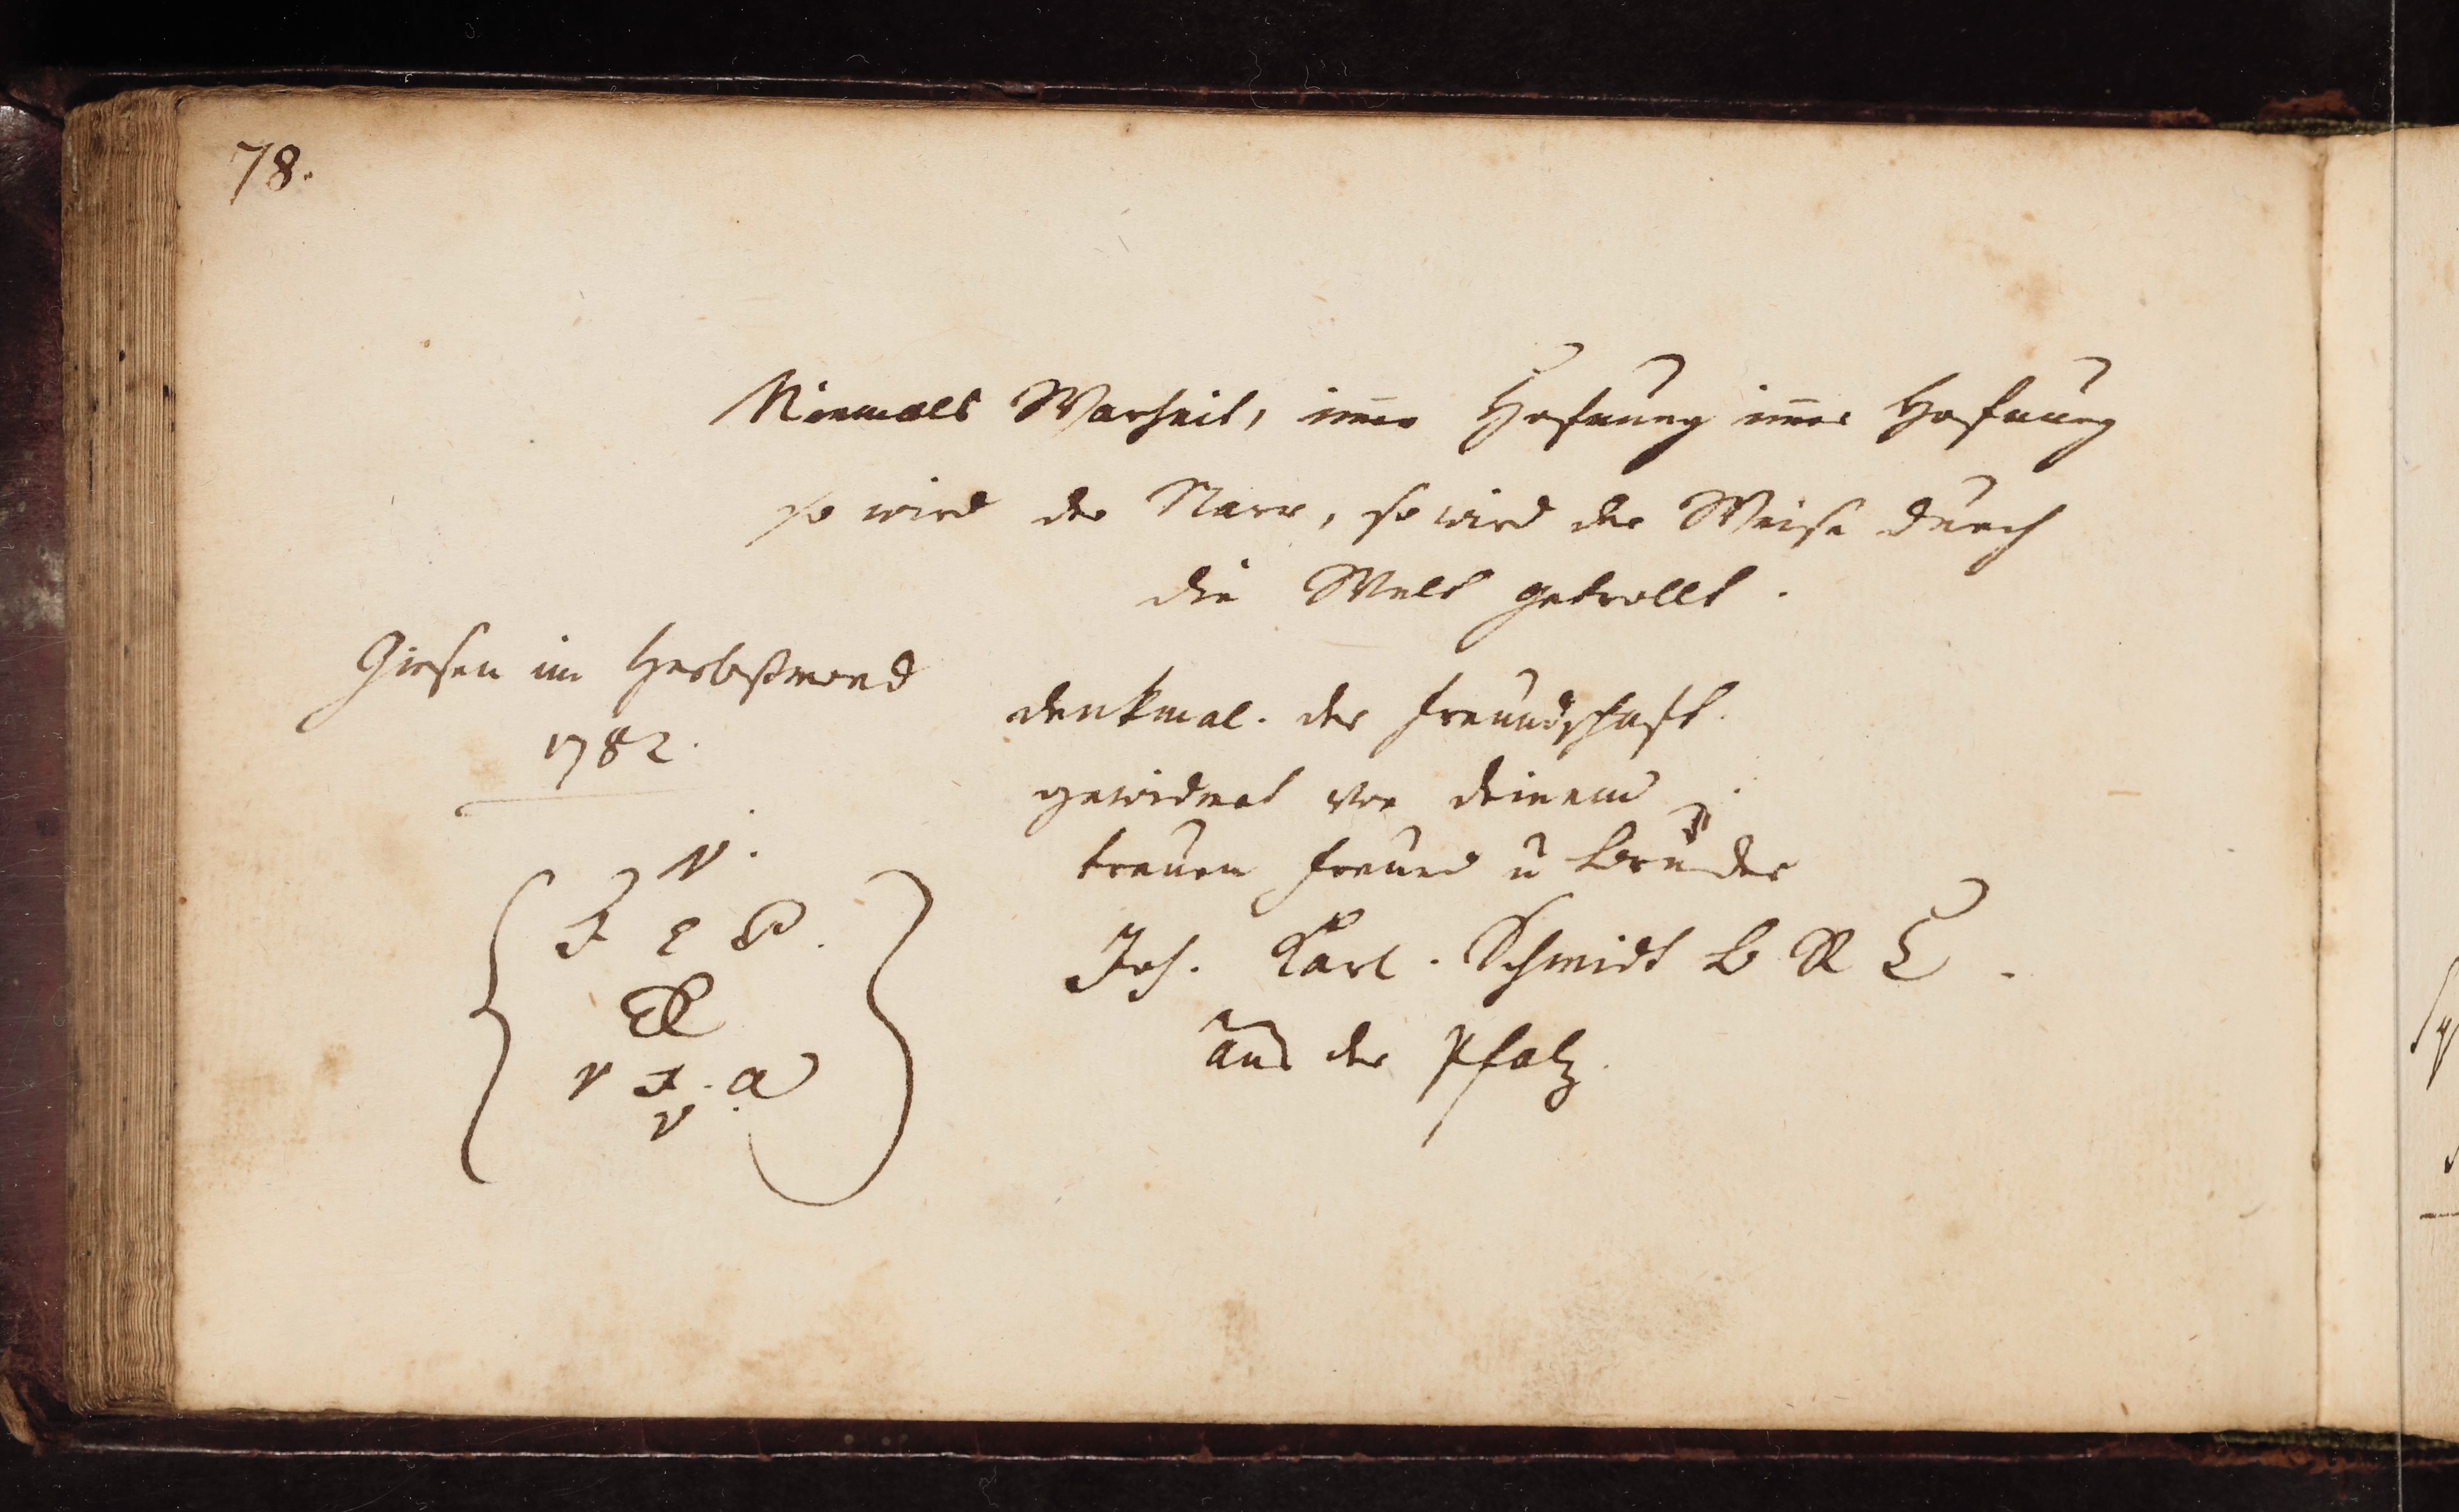 78.
Niemals Warheit, im̅er Hofnung im̅er Hofnung
so wird der Narr, so wird der Weise durch
die Welt getrollt.
Giesen im Herbstmond
1782.
denkmal. der Freundschaft.
gewidmet von deinem
treuen Freund u Bruder
Joh. Karl. Schmidt B R C.
aus der Pfalz.